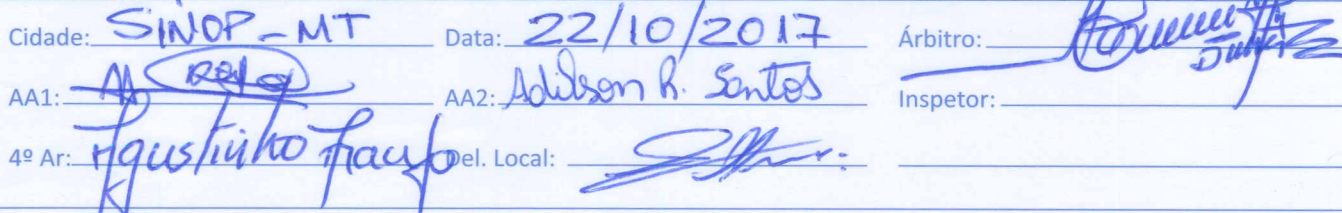 Cidade: SINOP-MT Data: 22/10/2017 Árbitro:
AA1: AA2: Adilson R. Santos Inspetor:
4º Ar: Agustinho Del. Local: